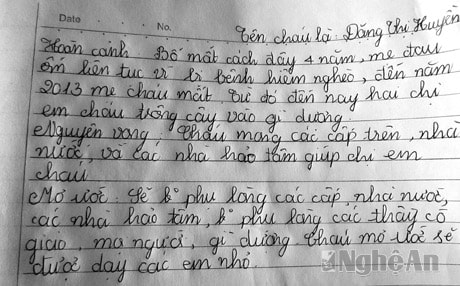 Date No.
Tên cháu là: Đặng Thị Huyền
Hoàn cảnh Bố mất cách đây 4 năm, mẹ đau
ốm liên tục vì bị bệnh hiểm nghèo, đến năm
2013 mẹ cháu mất. Từ đó đến nay hai chị
em cháu trông cậy vào gì dượng
Nguyện vọng: Cháu mong các cấp trên, nhà
nước, và các nhà hảo tâm giúp chị em
cháu
Mơ ước: Sẽ k phụ lòng các cấp, nhà nước,
các nhà hảo tâm, k phụ lòng các thầy cô
giáo, mọi người, gì dượng Cháu mơ ước sẽ
được dạy các em nhỏ.
Nghệ An